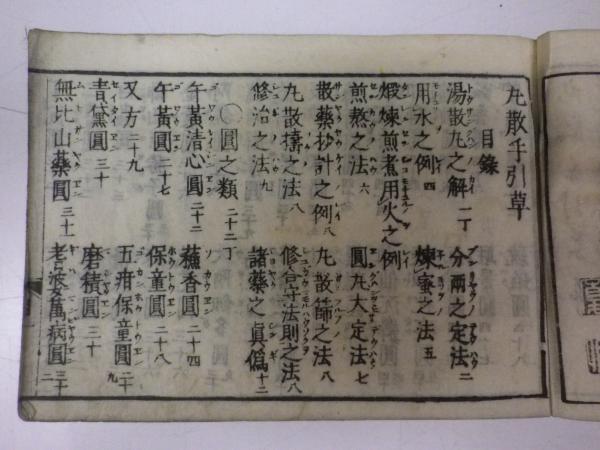 丸散手引草
目錄
湯散丸之解 一丁 分兩之定法 二
用水之例 四 煉蜜之法 五
煅煉煎煮用火之例
煎熬之法 六 圓丸大定法 七
散藥抄計之例 八 丸散篩之法 八
丸散擣之法 八 修合守法則之法 八
修治之法 九 諸藥之眞僞 十二
〇圓之類 二十二丁
牛黃清心圓 二十二 蘇香圓 二十四
牛黃圓 二十七 保童圓 二十八
又方 二十九 五疳保童圓 二十九
青黛圓 三十 磨積圓 三十
無比山藥圓 三十一 老婆萬病圓 三十二